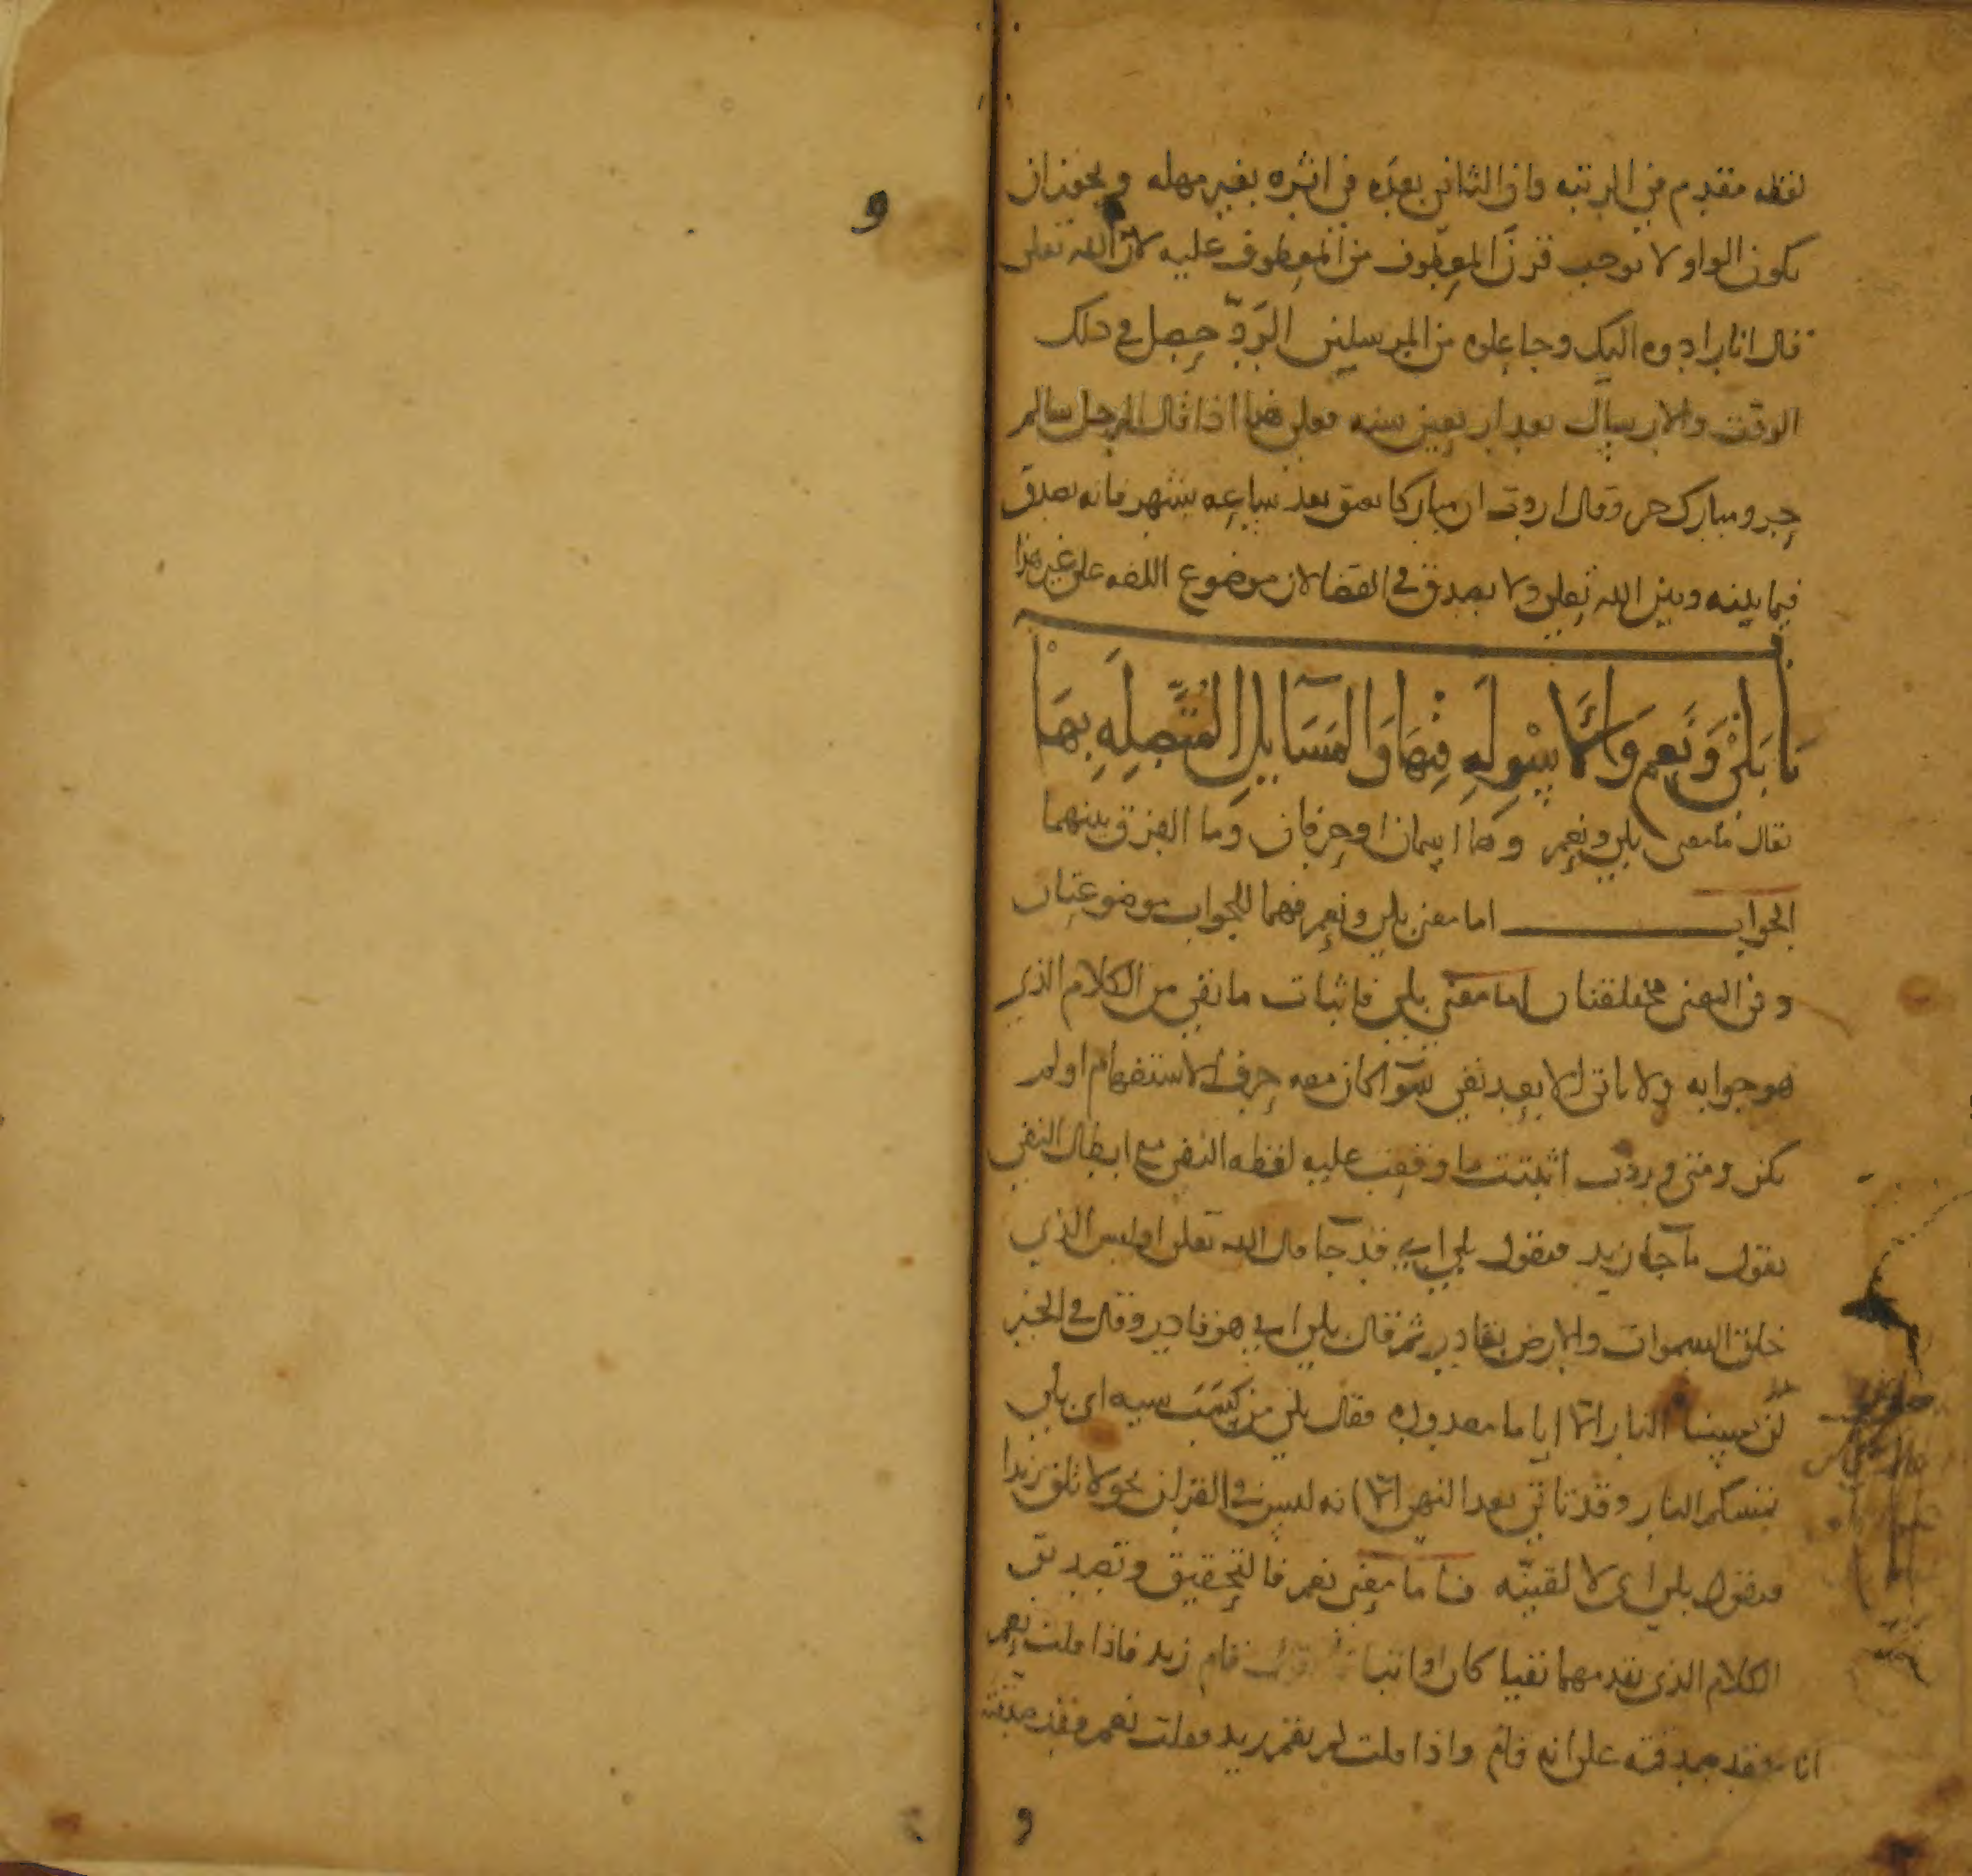 لفظه مقدم في الرتبه وان الثاني بعده في اثره بغير مهله ويجوز ان
يكون الواو لا توجب قرن المعطوف من المعطوف عليه لان الله تعلى
قال انا رادوه اليك وجاعلوه من المرسلين الردّ حصل في ذلك
الوقت والارسال بعد اربعين سنه فعلى هذا اذا قال الرجل سالم
حر ومبارك حر وقال اردت ان مباركا يعتق بعد ساعه بشهر فانه يصدق
فيما بينه وبين الله تعلى ولا يصدق في القضا لان موضوع اللغه على غير هذا
باب بلى ونعم والاسوله فيها والمسايل المتصله بها
يقال ما معنى بلى ونعم وهما اسمان او حرفان وما الفرق بينهما
الجواب اما معنى بلى ونعم فهما للجواب موضوعتان
وفي المعنى مختلفتان اما معنى بلى فاثبات ما نفي من الكلام الذي
هو جوابه ولا ياتي الا بعد نفي سوآ كان معه حرف الاستفهام او لم
يكن ومتى وردت اثبتت ما وقعت عليه لفظه النفي مع ابطال النفي
يقول ما جا زيد فيقول بلى اي قد جآ قال الله تعلى اوليس الذي
خلق السموات والارض بقادر ثم قال بلى اي هو قادر وقال في الخبر
لن تمسنا النار الا اياما معدوده فقال بلى من كسب سيه اي بلى
تمسكم النار وقد تاتي بعد النهي الا انه ليس في القران نحو لا تلق زيدا
فيقول بلى اي لا لقينّه فاما معنى نعم فالتحقيق وتصديق
الكلام الذي تقدمهما نفيا كان او اثبا قام زيد فاذا قلت نعم
فقد صدقته على انه قام واذا قلت لم يقم زيد فقلت نعم فقد صدقته
و
و